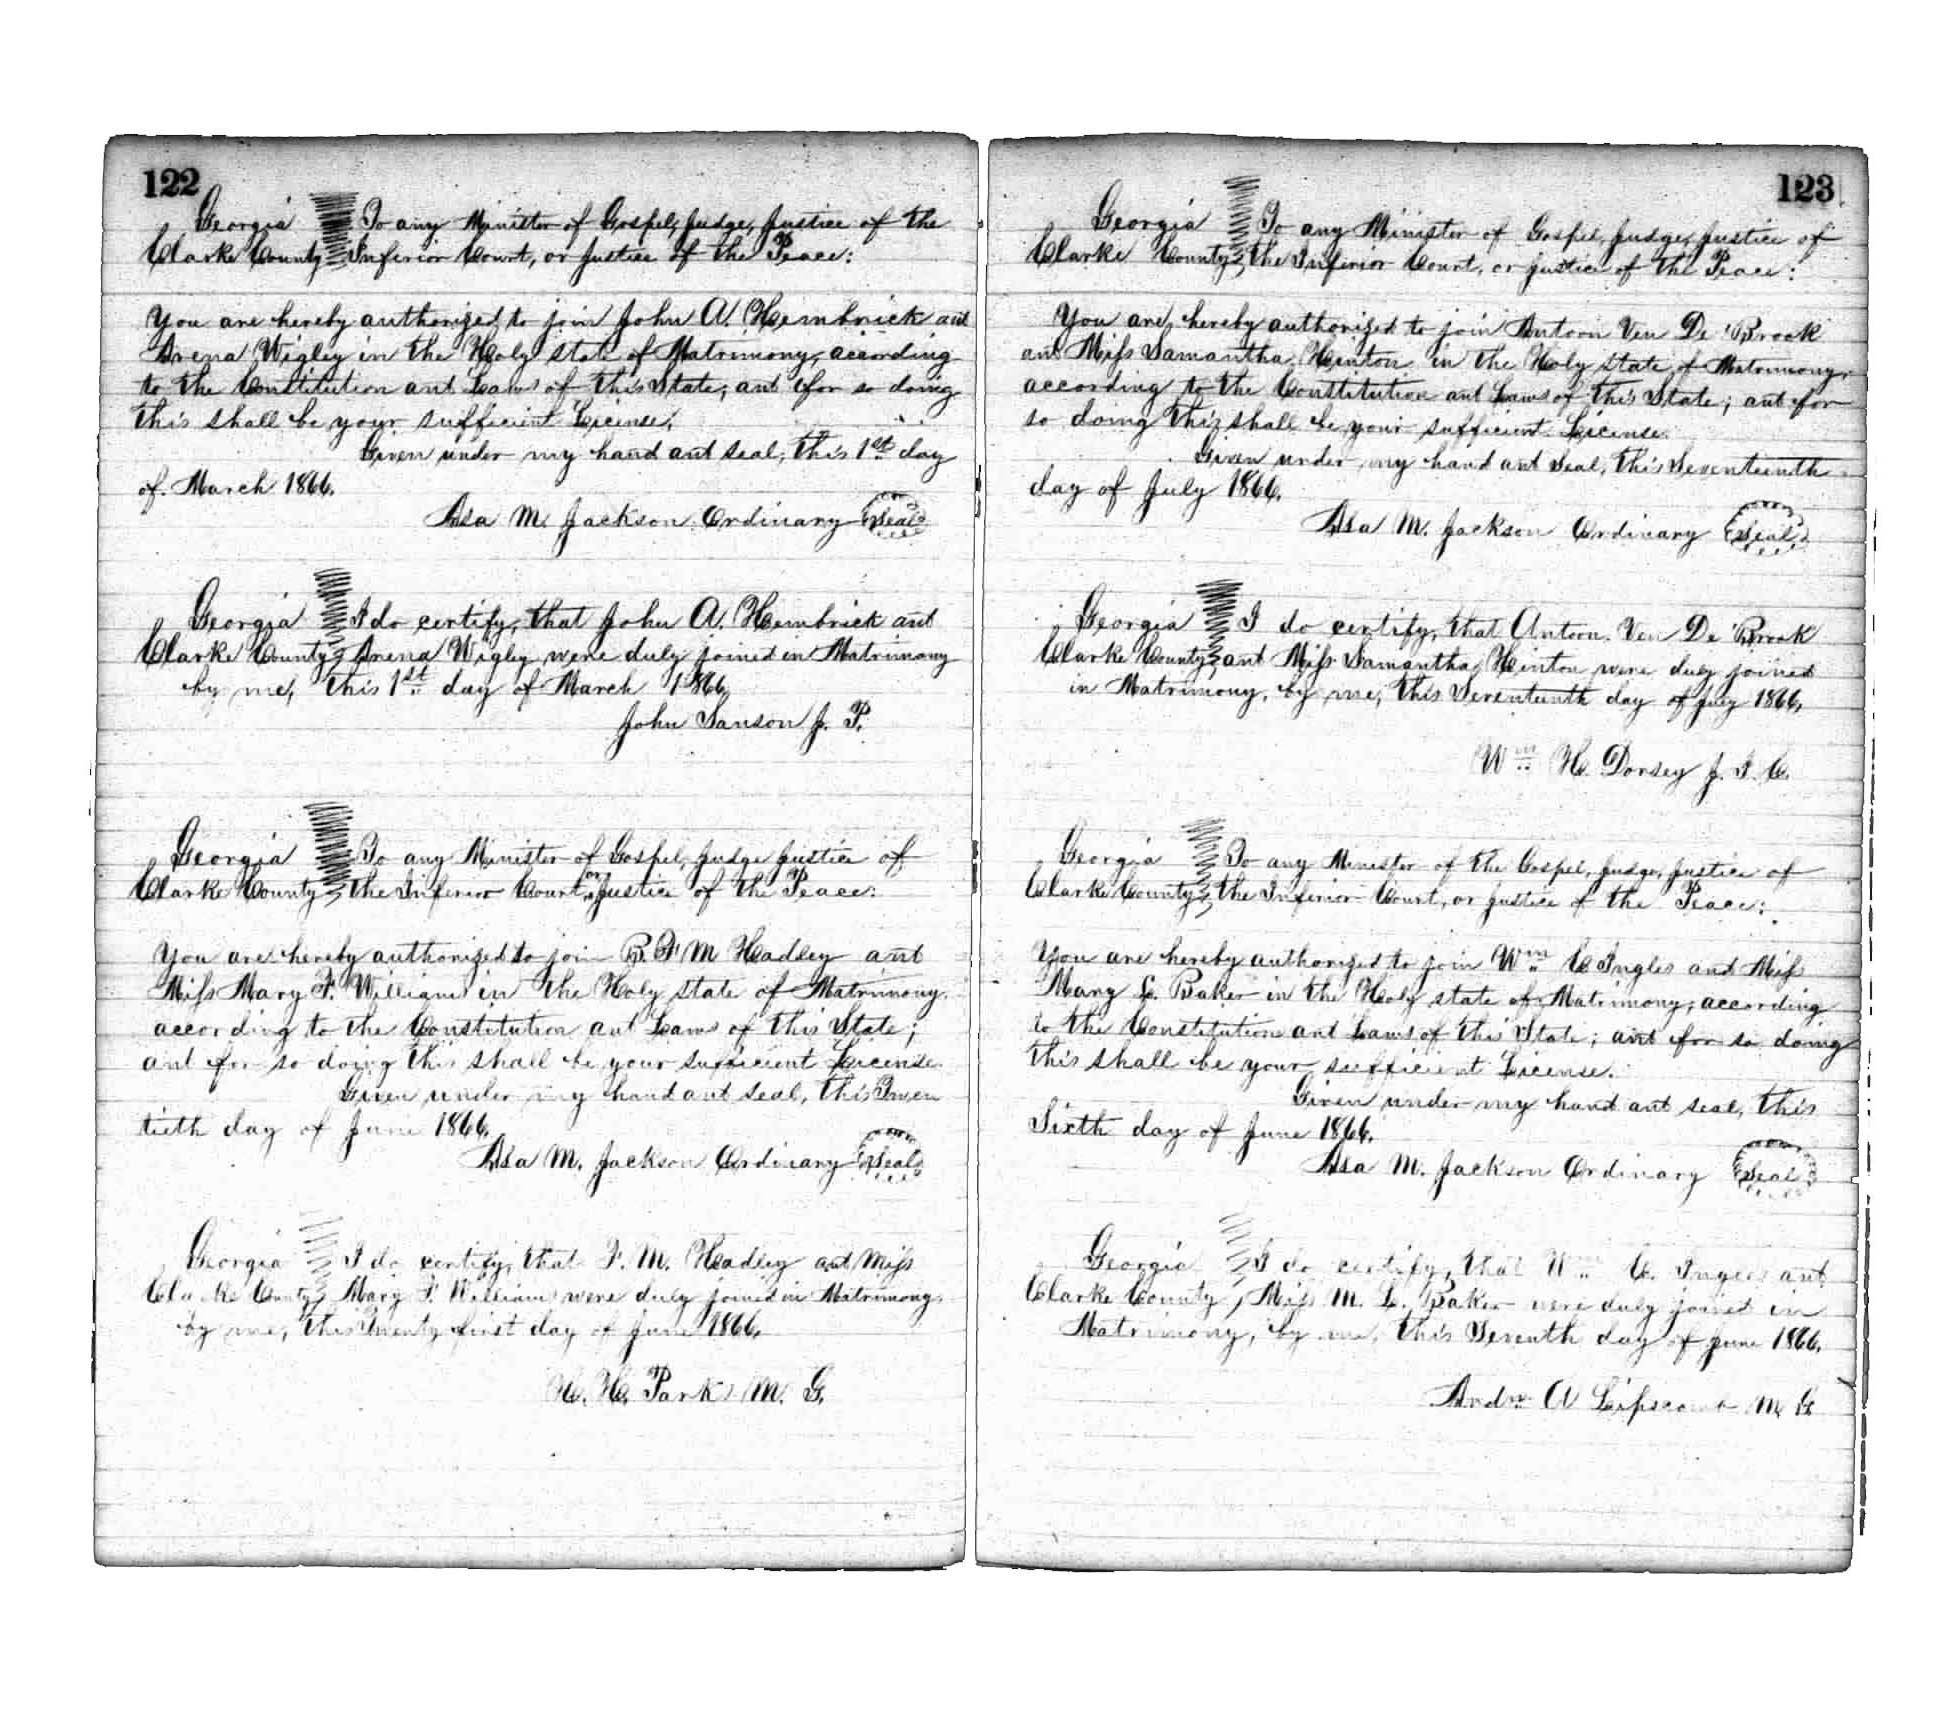 122
Georgia To any Minister of Gospel, Judge, Justice of the
Clarke County Inferior Court, or Justice of the Peace:
You are hereby authorized to join John A. Hembrick and
Arena Wigley in the Holy state of Matrimony, according
to the Constitution and Laws of this State; and for so doing
this shall be your sufficient License.
Given under my hand and seal, this 1st day
of March 1866.
Asa M. Jackson Ordinary Seal
Georgia I do certify, that John A. Hembrick and
Clarke County Arena Wigley were duly joined in Matrimony
by me, this 1st day of March 1866,
John Sanson J. P.
Georgia To any Minister of Gospel, Judge Justice of
Clarke County the Inferior Court, or Justice of the Peace:
You are hereby authorized to join B. F M Hadley and
Miss Mary F. Williams in the Holy state of Matrimony.
according to the Constitution and Laws of this State;
and for so doing this shall be your sufficient License.
Given under my hand and seal, this Twen
tieth day of June 1866.
Asa M. Jackson Ordinary Seal
Georgia I do certify, that F. M. Hadley and Miss
Clarke County Mary F. Williams were duly joined in Matrimony
by me, this Twenty first day of June 1866.
H. H. Parks M. G.
123
Georgia To any Minister of Gospel, Judge, Justice of
Clarke County the Inferior Court, or Justice of the Peace:
You are hereby authorized to join Antoon Ven De 'Brook
and Miss Samantha Hinton in the Holy state of Matrimony,
according to the Constitution and Laws of this State; and for
so doing this shall be your sufficient License.
Given under my hand and Seal, this Seventeenth
day of July 1866.
Asa M. Jackson Ordinary Seal
Georgia I do certify, that Antoon Ven De 'Brook
Clarke County and Miss Samantha Hinton were duly joined
in Matrimony, by me, this Seventeenth day of July 1866,
Wm H. Dorsey J. I. C.
Georgia To any Minister of the Gospel, Judge, Justice of
Clarke County the Inferior Court, or Justice of the Peace:
You are hereby authorized to join Wm C Ingles and Miss
Mary L. Baker in the Holy state of Matrimony, according
to the Constitution and Laws of this State; and for so doing
this shall be your sufficient License.
Given under my hand and seal, this
Sixth day of June 1866.
Asa M. Jackson Ordinary Seal
Georgia I do certify, that Wm C. Ingles and
Clarke County, Miss M. L. Baker were duly joined in
Matrimony, by me, this Seventh day of June 1866,
Andw A Lipscomb M G